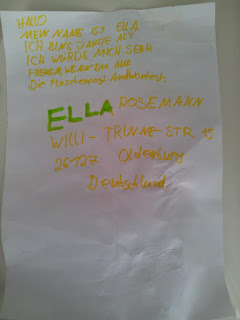 HALLO
MEIN NAME IST ELLA
ICH BIN 5 JAHRE ALT
ICH WÜRDE MICH SEHR
FREUEN, WENN DU AUF
Die Flaschenpost Antwortest,
ELLA ROSEMANN
WILLI-TRINNE-STR 15
26127 Oldenburg
Deutschland